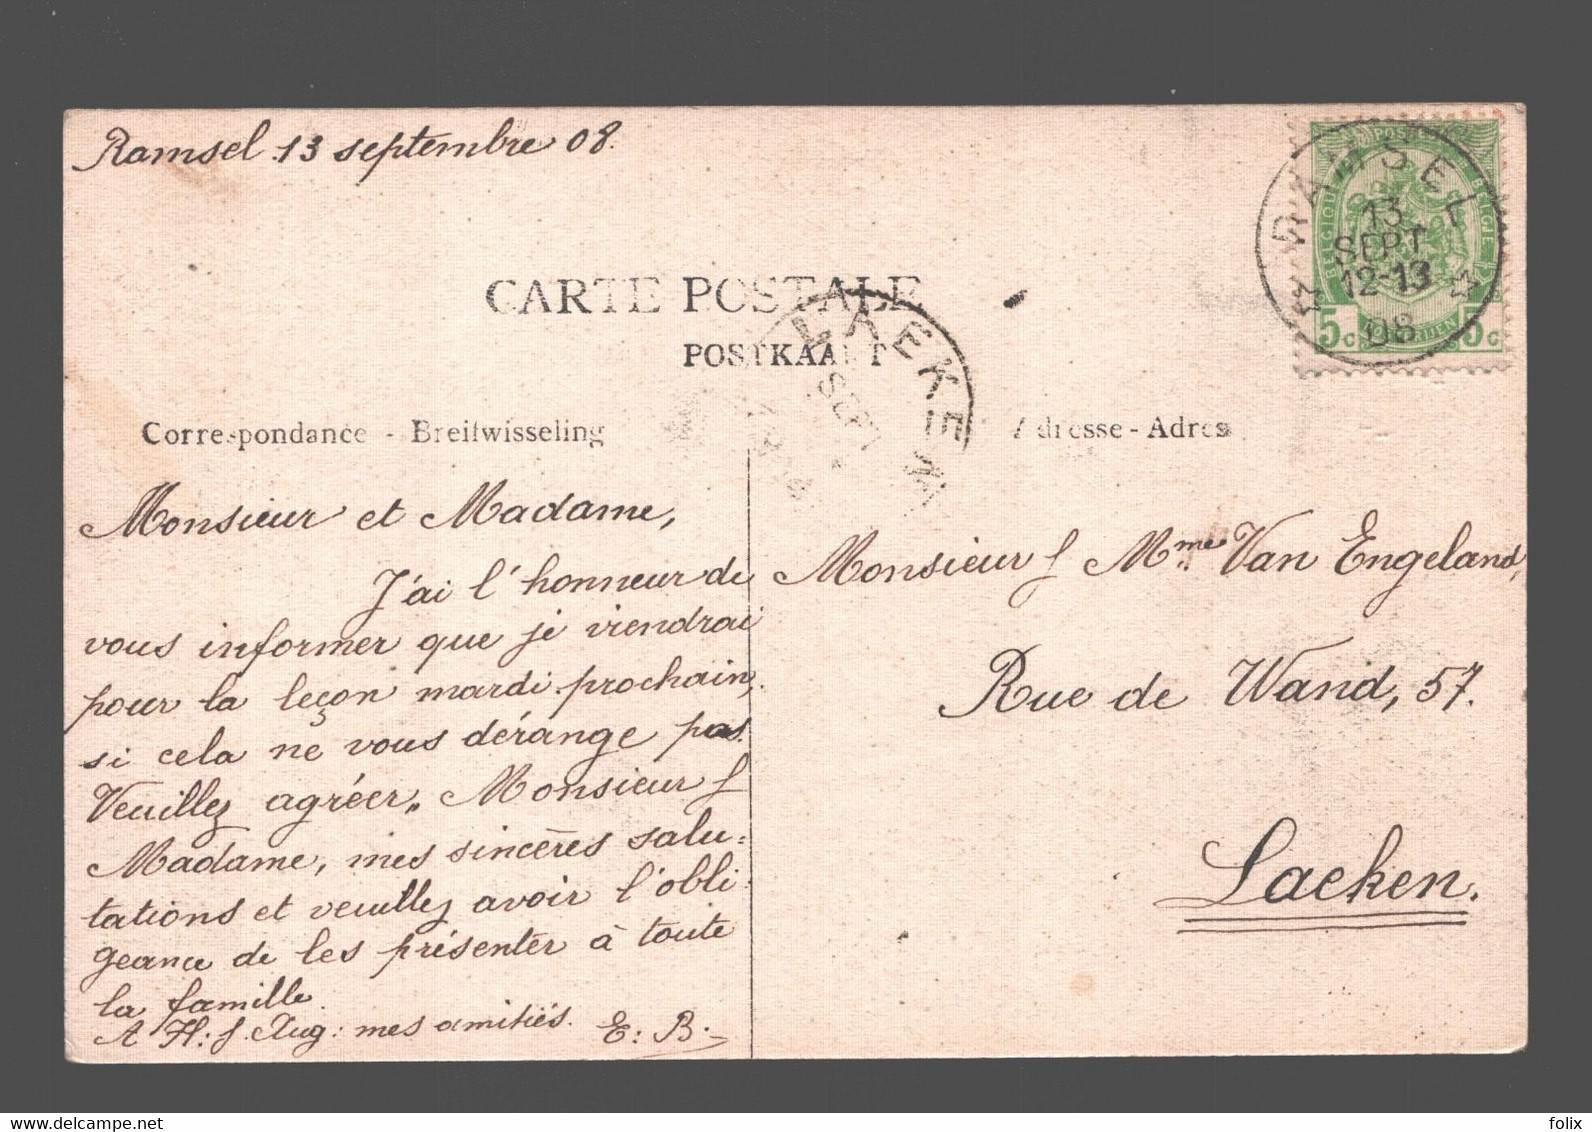 Ramsel 13 septembre 08.
CARTE POSTALE
POSTKAART
Correspondance - Breifwisseling
Adresse - Adres
Monsieur et Madame,
J'ai l'honneur de
vous informer que je viendrai
pour la leçon mardi prochain,
si cela ne vous dérange pas.
Veuillez agréer, Monsieur &
Madame, mes sincères salu=
tations et veuillez avoir l'obli=
geance de les présenter à toute
la famille.
A H: & Aug: mes amitiés. E: B.
Monsieur & Mme Van Engeland,
Rue de Wand, 57.
Laeken.
RAMSEL
13
SEPT
12-13
08
5c 5c
LAEKEN
SEPT
folix